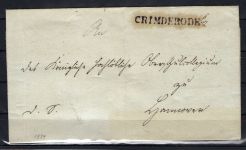 CRIMDERODE
An
das Königliche Hochlöbliche Ober
zu
Hannover
d. S.